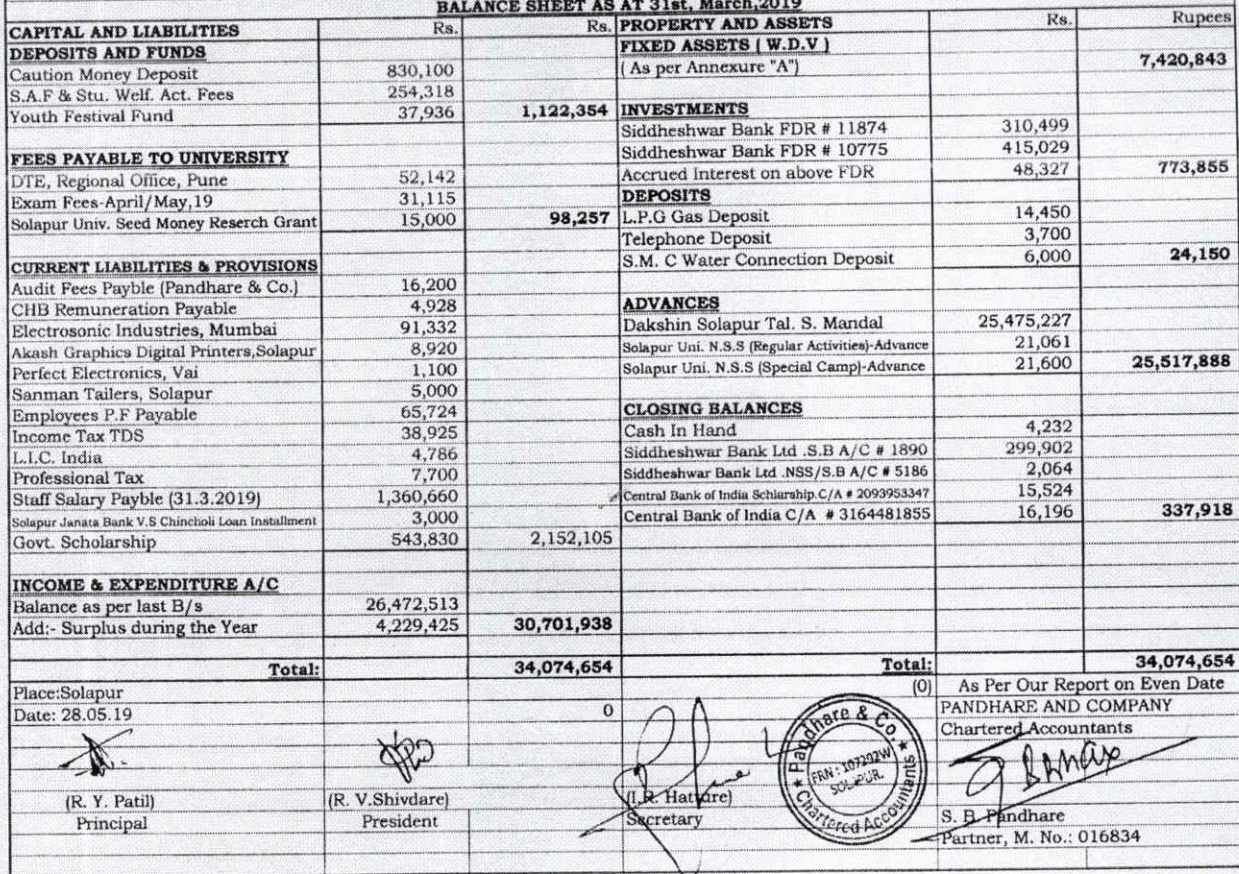 BALANCE SHEET AS AT 31st, March,2019
CAPITAL AND LIABILITIES Rs. Rs. PROPERTY AND ASSETS Rs. Rupees
DEPOSITS AND FUNDS FIXED ASSETS ( W.D.V )
Caution Money Deposit 830,100 ( As per Annexure "A") 7,420,843
S.A.F & Stu. Welf. Act. Fees 254,318
Youth Festival Fund 37,936 1,122,354 INVESTMENTS
Siddheshwar Bank FDR # 11874 310,499
FEES PAYABLE TO UNIVERSITY Siddheshwar Bank FDR # 10775 415,029
DTE, Regional Office, Pune 52,142 Accrued Interest on above FDR 48,327 773,855
Exam Fees-April/May,19 31,115 DEPOSITS
Solapur Univ. Seed Money Reserch Grant 15,000 98,257 L.P.G Gas Deposit 14,450
Telephone Deposit 3,700
CURRENT LIABILITIES & PROVISIONS S.M. C Water Connection Deposit 6,000 24,150
Audit Fees Payble (Pandhare & Co.) 16,200
CHB Remuneration Payable 4,928 ADVANCES
Electrosonic Industries, Mumbai 91,332 Dakshin Solapur Tal. S. Mandal 25,475,227
Akash Graphics Digital Printers,Solapur 8,920 Solapur Uni. N.S.S (Regular Activities)-Advance 21,061
Perfect Electronics, Vai 1,100 Solapur Uni. N.S.S (Special Camp)-Advance 21,600 25,517,888
Sanman Tailers, Solapur 5,000
Employees P.F Payable 65,724 CLOSING BALANCES
Income Tax TDS 38,925 Cash In Hand 4,232
L.I.C. India 4,786 Siddheshwar Bank Ltd .S.B A/C # 1890 299,902
Professional Tax 7,700 Siddheshwar Bank Ltd .NSS/S.B A/C # 5186 2,064
Staff Salary Payble (31.3.2019) 1,360,660 Central Bank of India Schlarship.C/A # 2093953347 15,524
Solapur Janata Bank V.S Chincholi Loan Installment 3,000 Central Bank of India C/A # 3164481855 16,196 337,918
Govt. Scholarship 543,830 2,152,105
INCOME & EXPENDITURE A/C
Balance as per last B/s 26,472,513
Add:- Surplus during the Year 4,229,425 30,701,938
Total: 34,074,654 Total: 34,074,654
Place:Solapur (0) As Per Our Report on Even Date
Date: 28.05.19 0 PANDHARE AND COMPANY
Chartered Accountants
Pandhare & Co.
FRN : 107292W
SOLAPUR.
Chartered Accountants
(R. Y. Patil) (R. V.Shivdare) (I.R. Hatture)
Principal President Secretary S. B. Pandhare
Partner, M. No.: 016834